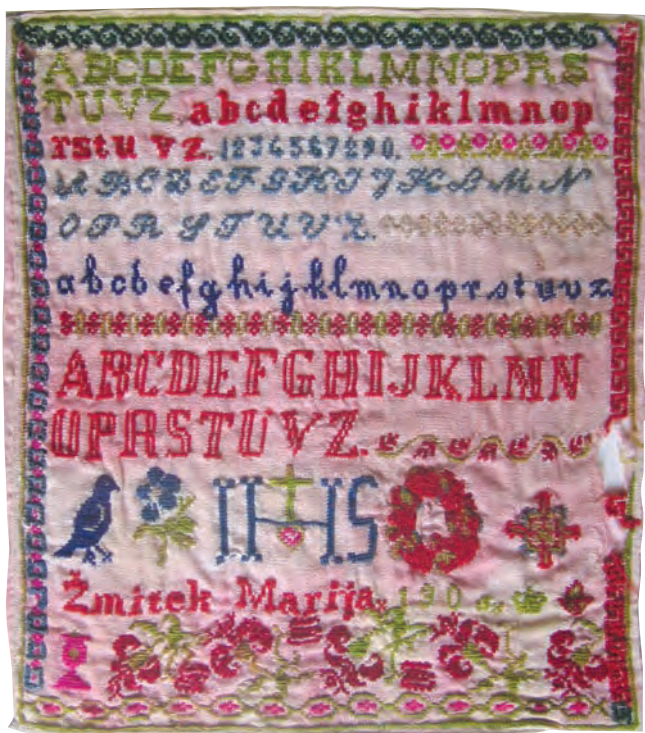 ABCDEFGHIKLMNOPRS
TUVZ. abcdefghiklmnop
rstuvz. 1234567890.
ABCDEFGHIJKLMN
OPRSTUVZ.
abcdefghijklmnoprstuvz
ABCDEFGHIJKLMN
OPRSTUVZ.
IHS
Žmitek Marija